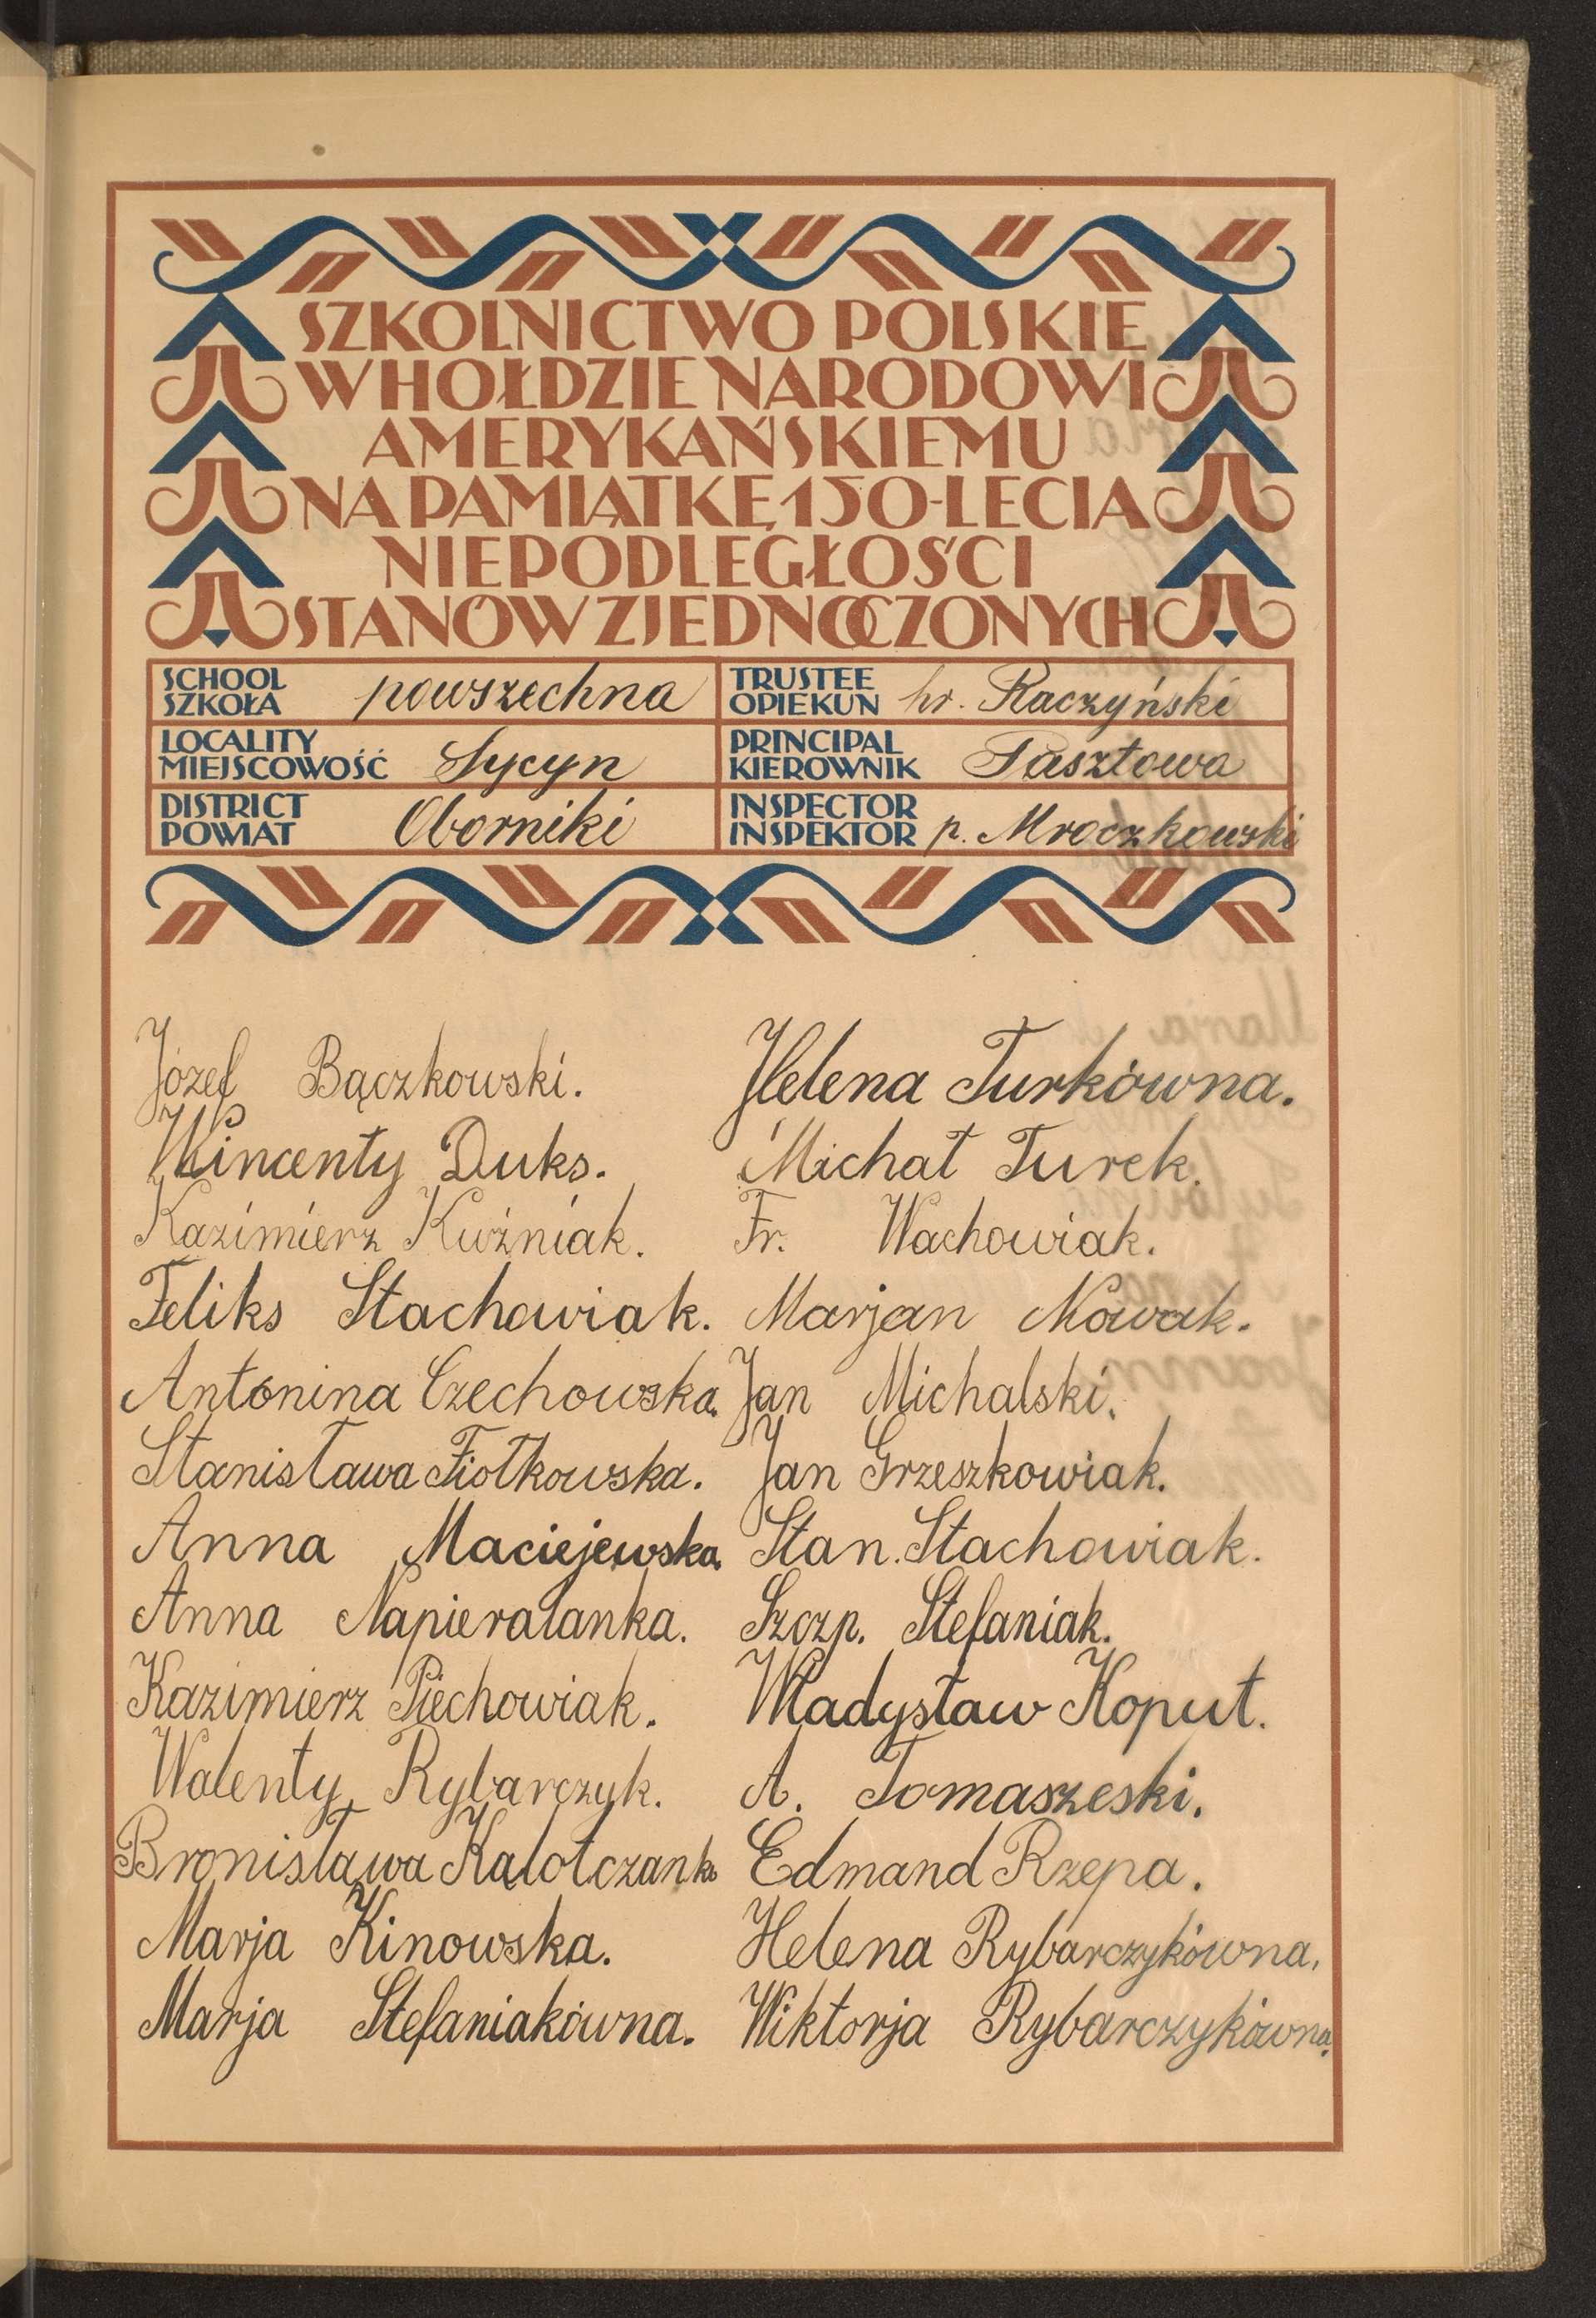 SZKOLNICTWO POLSKIE
W HOŁDZIE NARODOWI
AMERYKAŃSKIEMU
NA PAMIĄTKĘ 150-LECIA
NIEPODLEGŁOŚCI
STANÓW ZJEDNOCZONYCH
SCHOOL
SZKOŁA powszechna
TRUSTEE
OPIEKUN hr. Raczyński
LOCALITY
MIEJSCOWOŚĆ Sycyn
PRINCIPAL
KIEROWNIK Pasztowa
DISTRICT
POWIAT Oborniki
INSPECTOR
INSPEKTOR p. Mroczkowski
Józef Bączkowski.
Wincenty Duks.
Kazimierz Kuźniak.
Feliks Stachowiak.
Antonina Czechowska.
Stanisława Fiołkowska.
Anna Maciejewska.
Anna Napierałanka.
Kazimierz Piechowiak.
Walenty Rybarczyk.
Bronisława
Marja Kinowska.
Marja Stefaniakówna.
Helena Turkówna.
Michał Turek.
Fr. Wachowiak.
Marjan Nowak.
Jan Michalski.
Jan Grzeszkowiak.
Stan. Stachowiak.
Szczp. Stefaniak.
Władysław Koput.
A. Tomaszeski.
Edmand Rzepa.
Helena Rybarczykówna.
Wiktorja Rybarczykówna.